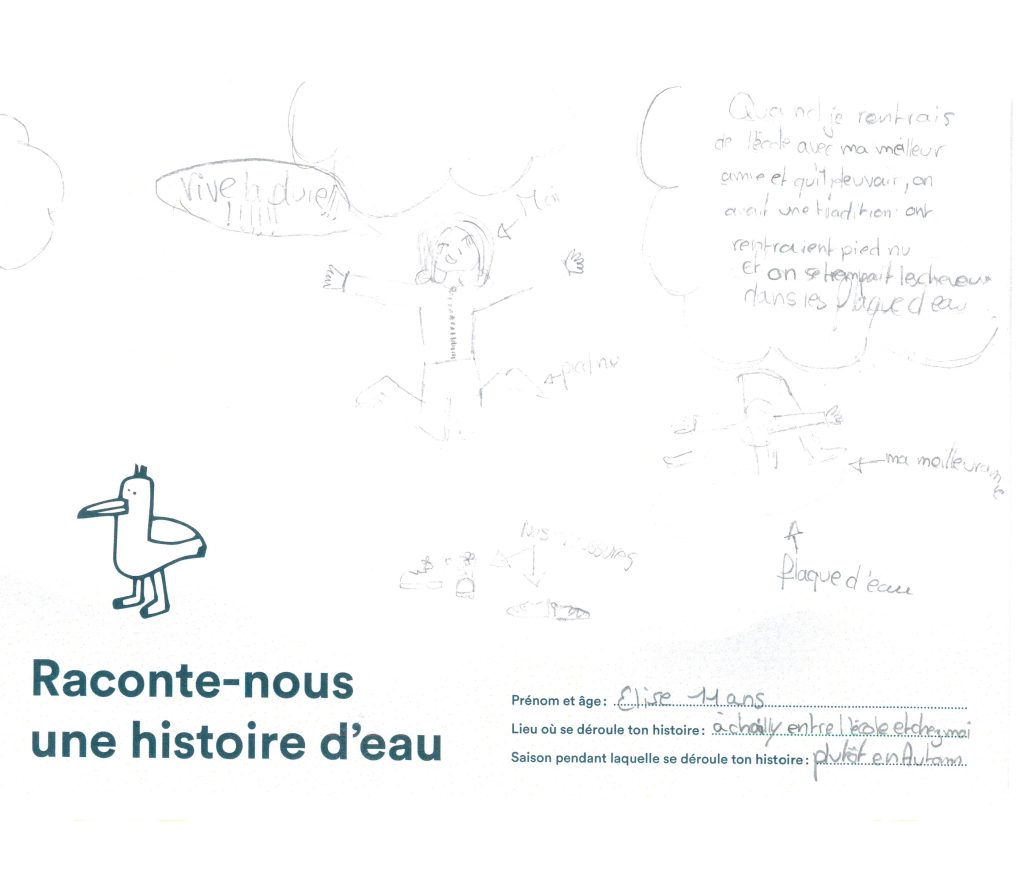 Quand je rentrais
de l'école avec ma meilleur
amie et qu'il pleuvair, on
avait une tradition ont
rentraient pied nu
Et on se trempait les cheveux
dans les plaque d'eau
vive la
!!!!!!
Moi
pied nu
ma meilleur amie
Nos
plaque d'eau
Raconte-nous
une histoire d'eau
Prénom et âge : Elise 11 ans
Lieu où se déroule ton histoire : à chailly entre l'école et chez moi
Saison pendant laquelle se déroule ton histoire : plutôt en Automn